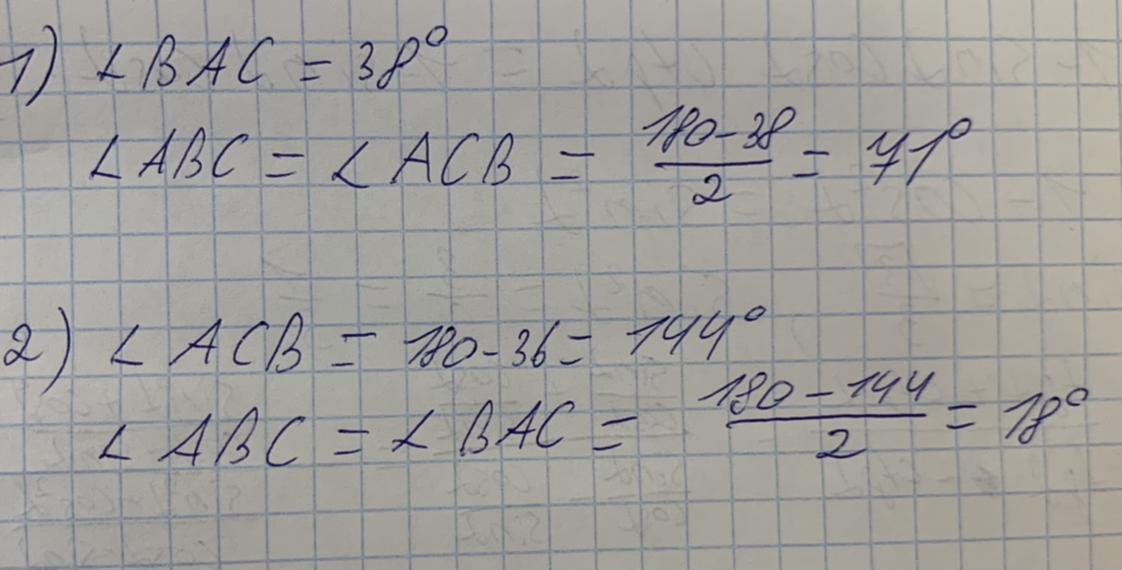 1) ∠BAC = 38°
∠ABC = ∠ACB = \frac{180-38}{2} = 71°
2) ∠ACB = 180-36 = 144°
∠ABC = ∠BAC = \frac{180-144}{2} = 18°